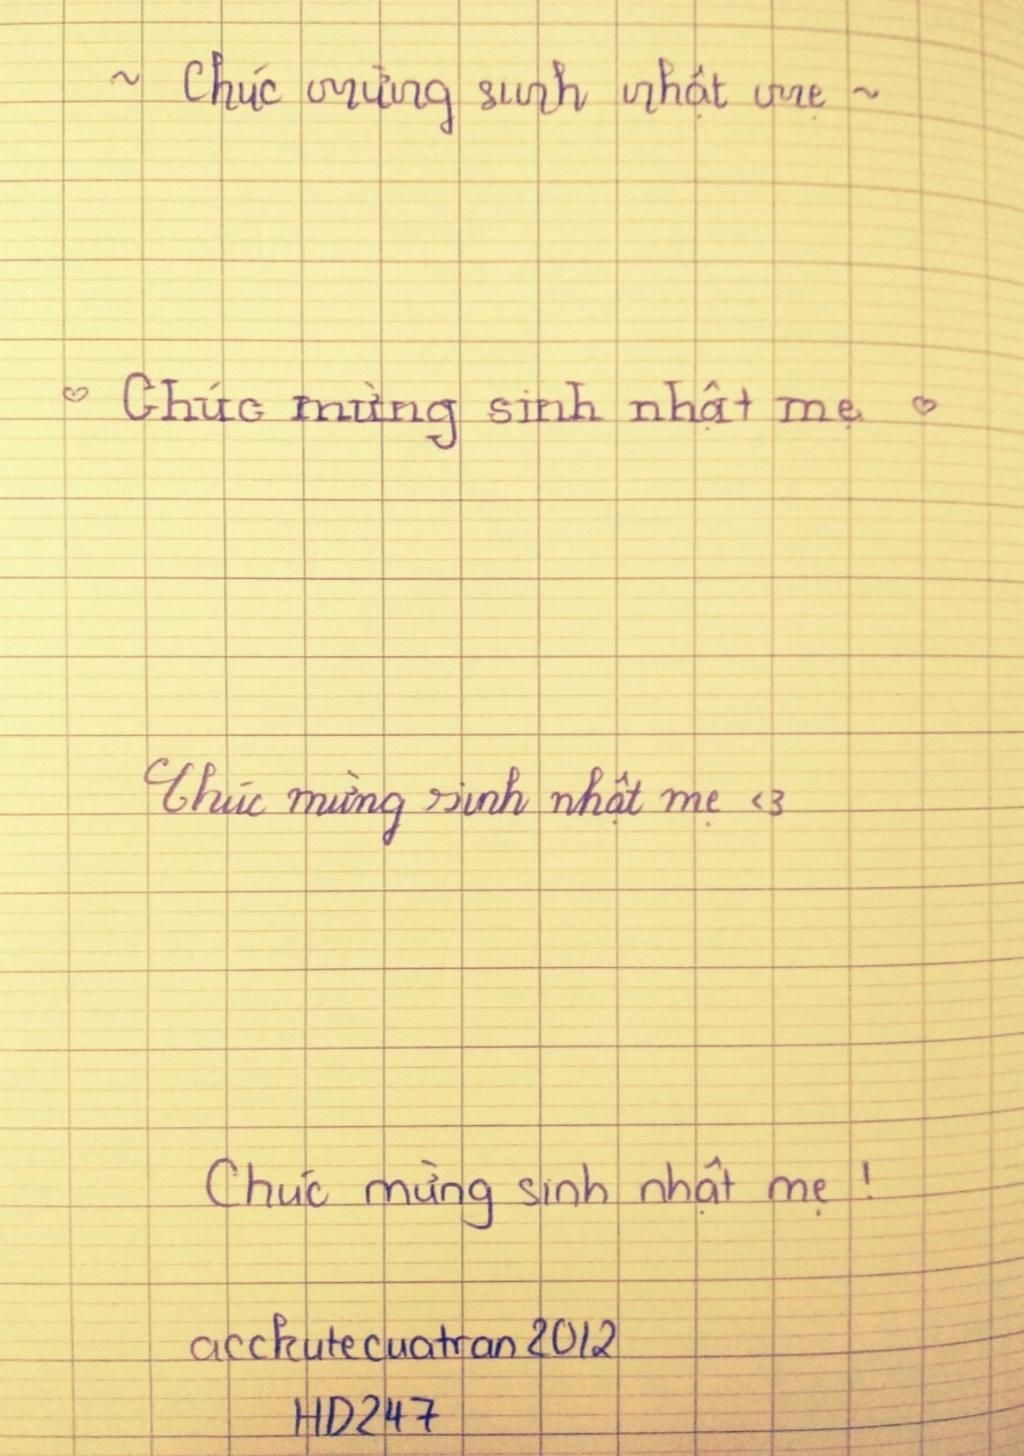 ~ Chúc mừng sinh nhật mẹ ~
♡ Chúc mừng sinh nhật mẹ ♡
Chúc mừng sinh nhật mẹ <3
Chúc mừng sinh nhật mẹ !
acckutecuatran2012
HD247